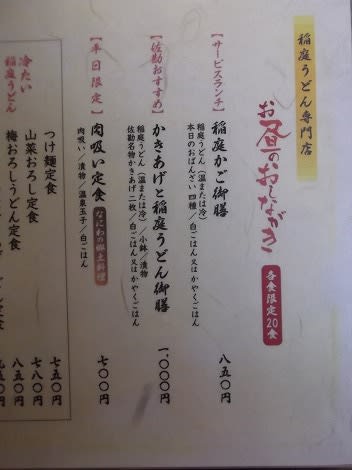 稲庭うどん専門店
お昼のおしながき
各食限定20食
【サービスランチ】
稲庭かご御膳
稲庭うどん(温または冷)
本日のおばんざい四種/白ごはん又はかやくごはん
八五〇円
【佐勘おすすめ】
かきあげと稲庭うどん御膳
稲庭うどん(温または冷)/小鉢/漬物
佐勘名物かきあげ二枚/白ごはん又はかやくごはん
一、〇〇〇円
【平日限定】
肉吸い定食 なにわの郷土料理
肉吸い/漬物/温泉玉子/白ごはん
七〇〇円
冷たい
稲庭うどん
つけ麺定食
七五〇円
山菜おろし定食
七八〇円
梅おろしうどん定食
八五〇円
九五〇円